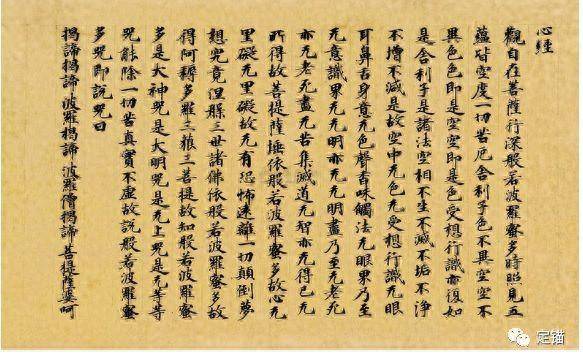 心經
觀自在菩薩行深般若波羅蜜多時照見五
蘊皆空度一切苦厄舍利子色不異空空不
異色色即是空空即是色受想行識亦復如
是舍利子是諸法空相不生不滅不垢不淨
不增不減是故空中无色无受想行識无眼
耳鼻舌身意无色聲香味觸法无眼界乃至
无意識界无无明亦无无明盡乃至无老死
亦无老死盡无苦集滅道无智亦无得已无
所得故菩提薩埵依般若波羅蜜多故心无
罣礙无罣礙故无有恐怖遠離一切顛倒夢
想究竟涅槃三世諸佛依般若波羅蜜多故
得阿耨多羅三藐三菩提故知般若波羅蜜
多是大神咒是大明咒是无上咒是无等等
咒能除一切苦真實不虛故說般若波羅蜜
多咒即說咒曰
揭諦揭諦波羅揭諦波羅僧揭諦 菩提薩婆呵
定锚